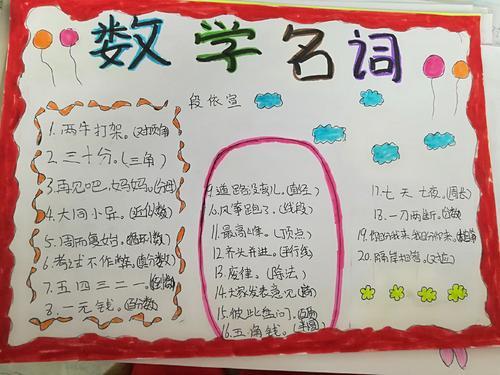 数学名词
段依宣
1.两牛打架。(对顶角)
2.三十分。(三角)
3.再见吧,妈妈。(分母)
4.大同小异。(近似数)
5.周而复始。(循环小数)
6.考试不作弊。(真分数)
7.五四三二一。(倒数)
8.一元钱。(百分数)
9.道路没弯儿。(直径)
10.风筝跑了。(线段)
11.最高峰。(顶点)
12.齐头并进。(平行线)
13.废律。(除法)
14.大家发表意见。
15.彼此盘问。
16.五角钱。(半圆)
17.七天七夜。(周长)
18.一刀两断。
19.
20.隔岸相答。(对应)